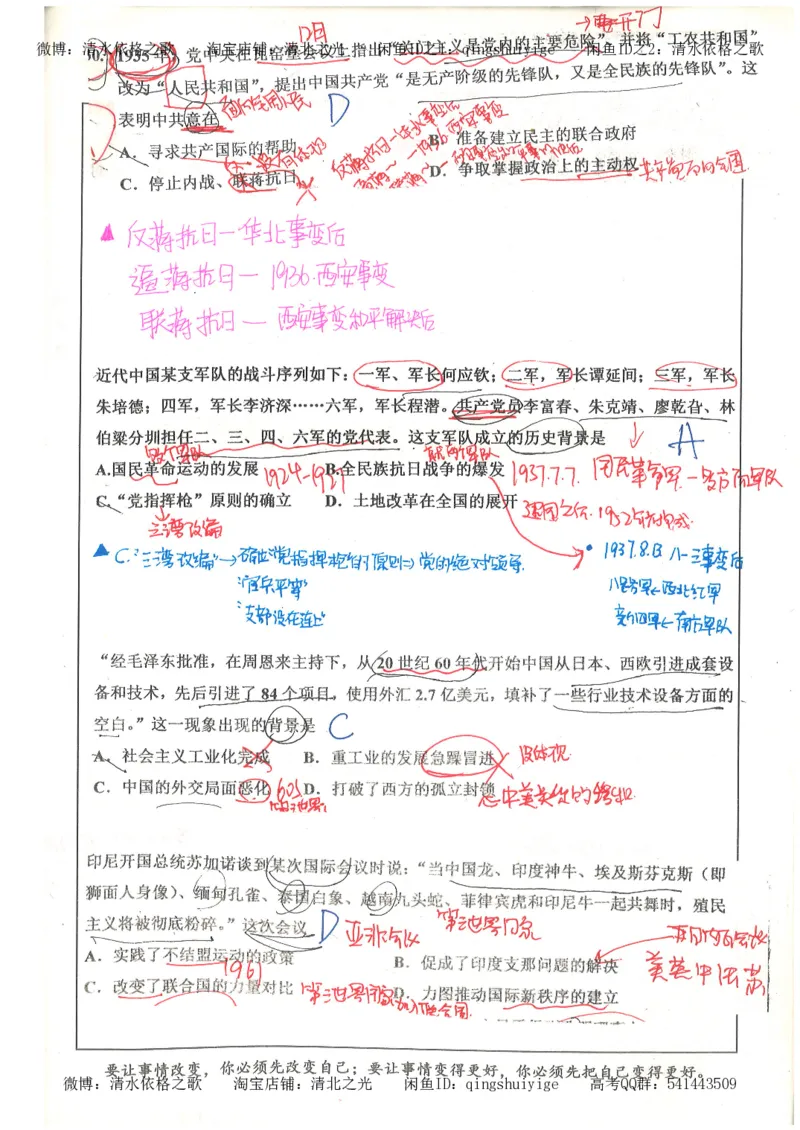 微博：清水依格之歌 淘宝店铺：清北之光 闲鱼ID之1：qingshuiyige 闲鱼ID之2：清水依格之歌
12月
→要开门
30. 1935年，党中央在瓦窑堡会议上指出“关门主义是党内的主要危险”，并将“工农共和国”
改为“人民共和国”，提出中国共产党“是无产阶级的先锋队，又是全民族的先锋队”。这
表明中共意在
D
A．寻求共产国际的帮助
B．准备建立民主的联合政府
C．停止内战、联蒋抗日
D．争取掌握政治上的主动权
▲ 反蒋抗日—华北事变后
逼蒋抗日—1936.西安事变
联蒋抗日—西安事变和平解决后
近代中国某支军队的战斗序列如下：一军、军长何应钦；二军，军长谭延闿；三军，军长
朱培德；四军，军长李济深……六军，军长程潜。共产党员李富春、朱克靖、廖乾吾、林
伯渠分别担任二、三、四、六军的党代表。这支军队成立的历史背景是
A
A.国民革命运动的发展
1924-1927
B.全民族抗日战争的爆发
1937.7.7.
国民革命军
C.“党指挥枪”原则的确立
D．土地改革在全国的展开
建国之后·1952年完成
三湾改编
▲ C.“三湾改编”→确立“党指挥枪”的原则⇒党的绝对领导.
“官兵平等”
“支部设在连上”
• 1937.8.13 八一三事变后
八路军←西北红军
新四军←南方军队
“经毛泽东批准，在周恩来主持下，从20世纪60年代开始中国从日本、西欧引进成套设
备和技术，先后引进了84个项目，使用外汇2.7亿美元，填补了一些行业技术设备方面的
空白。”这一现象出现的背景是
C
A．社会主义工业化完成
B．重工业的发展急躁冒进
没体现
C．中国的外交局面恶化
60s
D．打破了西方的孤立封锁
印尼开国总统苏加诺谈到某次国际会议时说：“当中国龙、印度神牛、埃及斯芬克斯（即
狮面人身像）、缅甸孔雀、泰国白象、越南九头蛇、菲律宾虎和印尼牛一起共舞时，殖民
主义将被彻底粉碎。”这次会议
D
亚非会议
A．实践了不结盟运动的政策
1961
B．促成了印度支那问题的解决
日内瓦会议
美英中法苏
C．改变了联合国的力量对比
D．力图推动国际新秩序的建立
要让事情改变，你必须先改变自己；要让事情变得更好，你必须先把自己变得更好。
微博：清水依格之歌 淘宝店铺：清北之光 闲鱼ID：qingshuiyige 高考QQ群：541443509